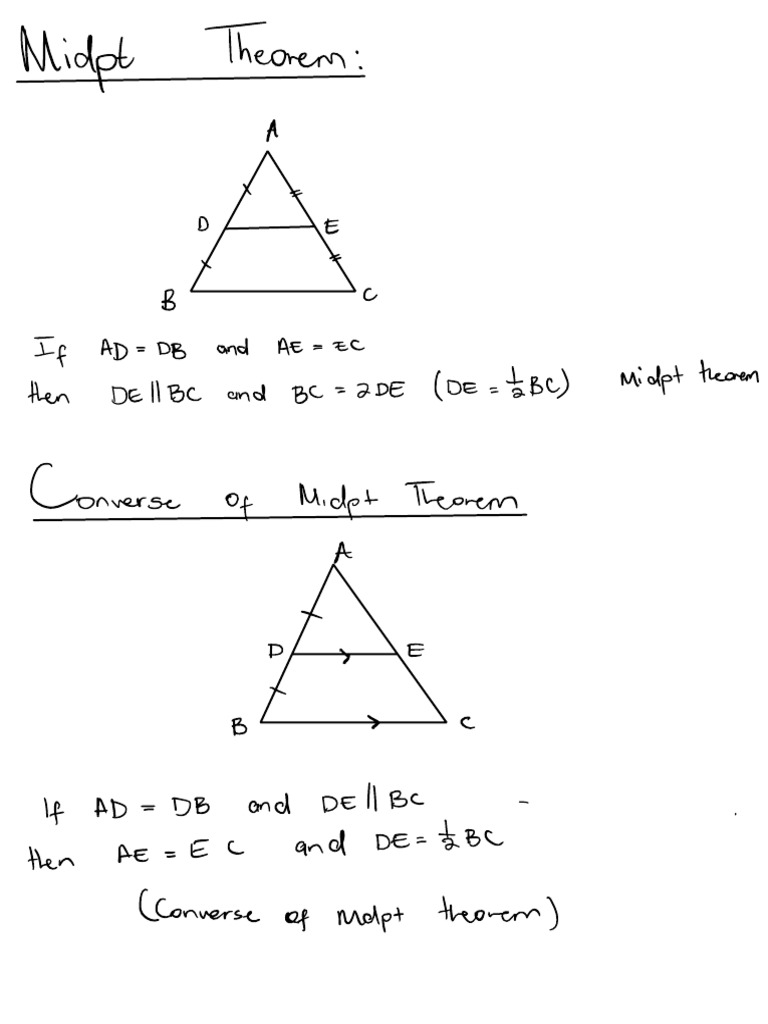 Midpt Theorem:
A
D E
B C
If AD = DB and AE = EC
then DE || BC and BC = 2DE (DE = 1/2 BC) Midpt theorem
Converse of Midpt Theorem
A
D E
B C
If AD = DB and DE || BC
then AE = EC and DE = 1/2 BC
(Converse of Mdpt theorem)